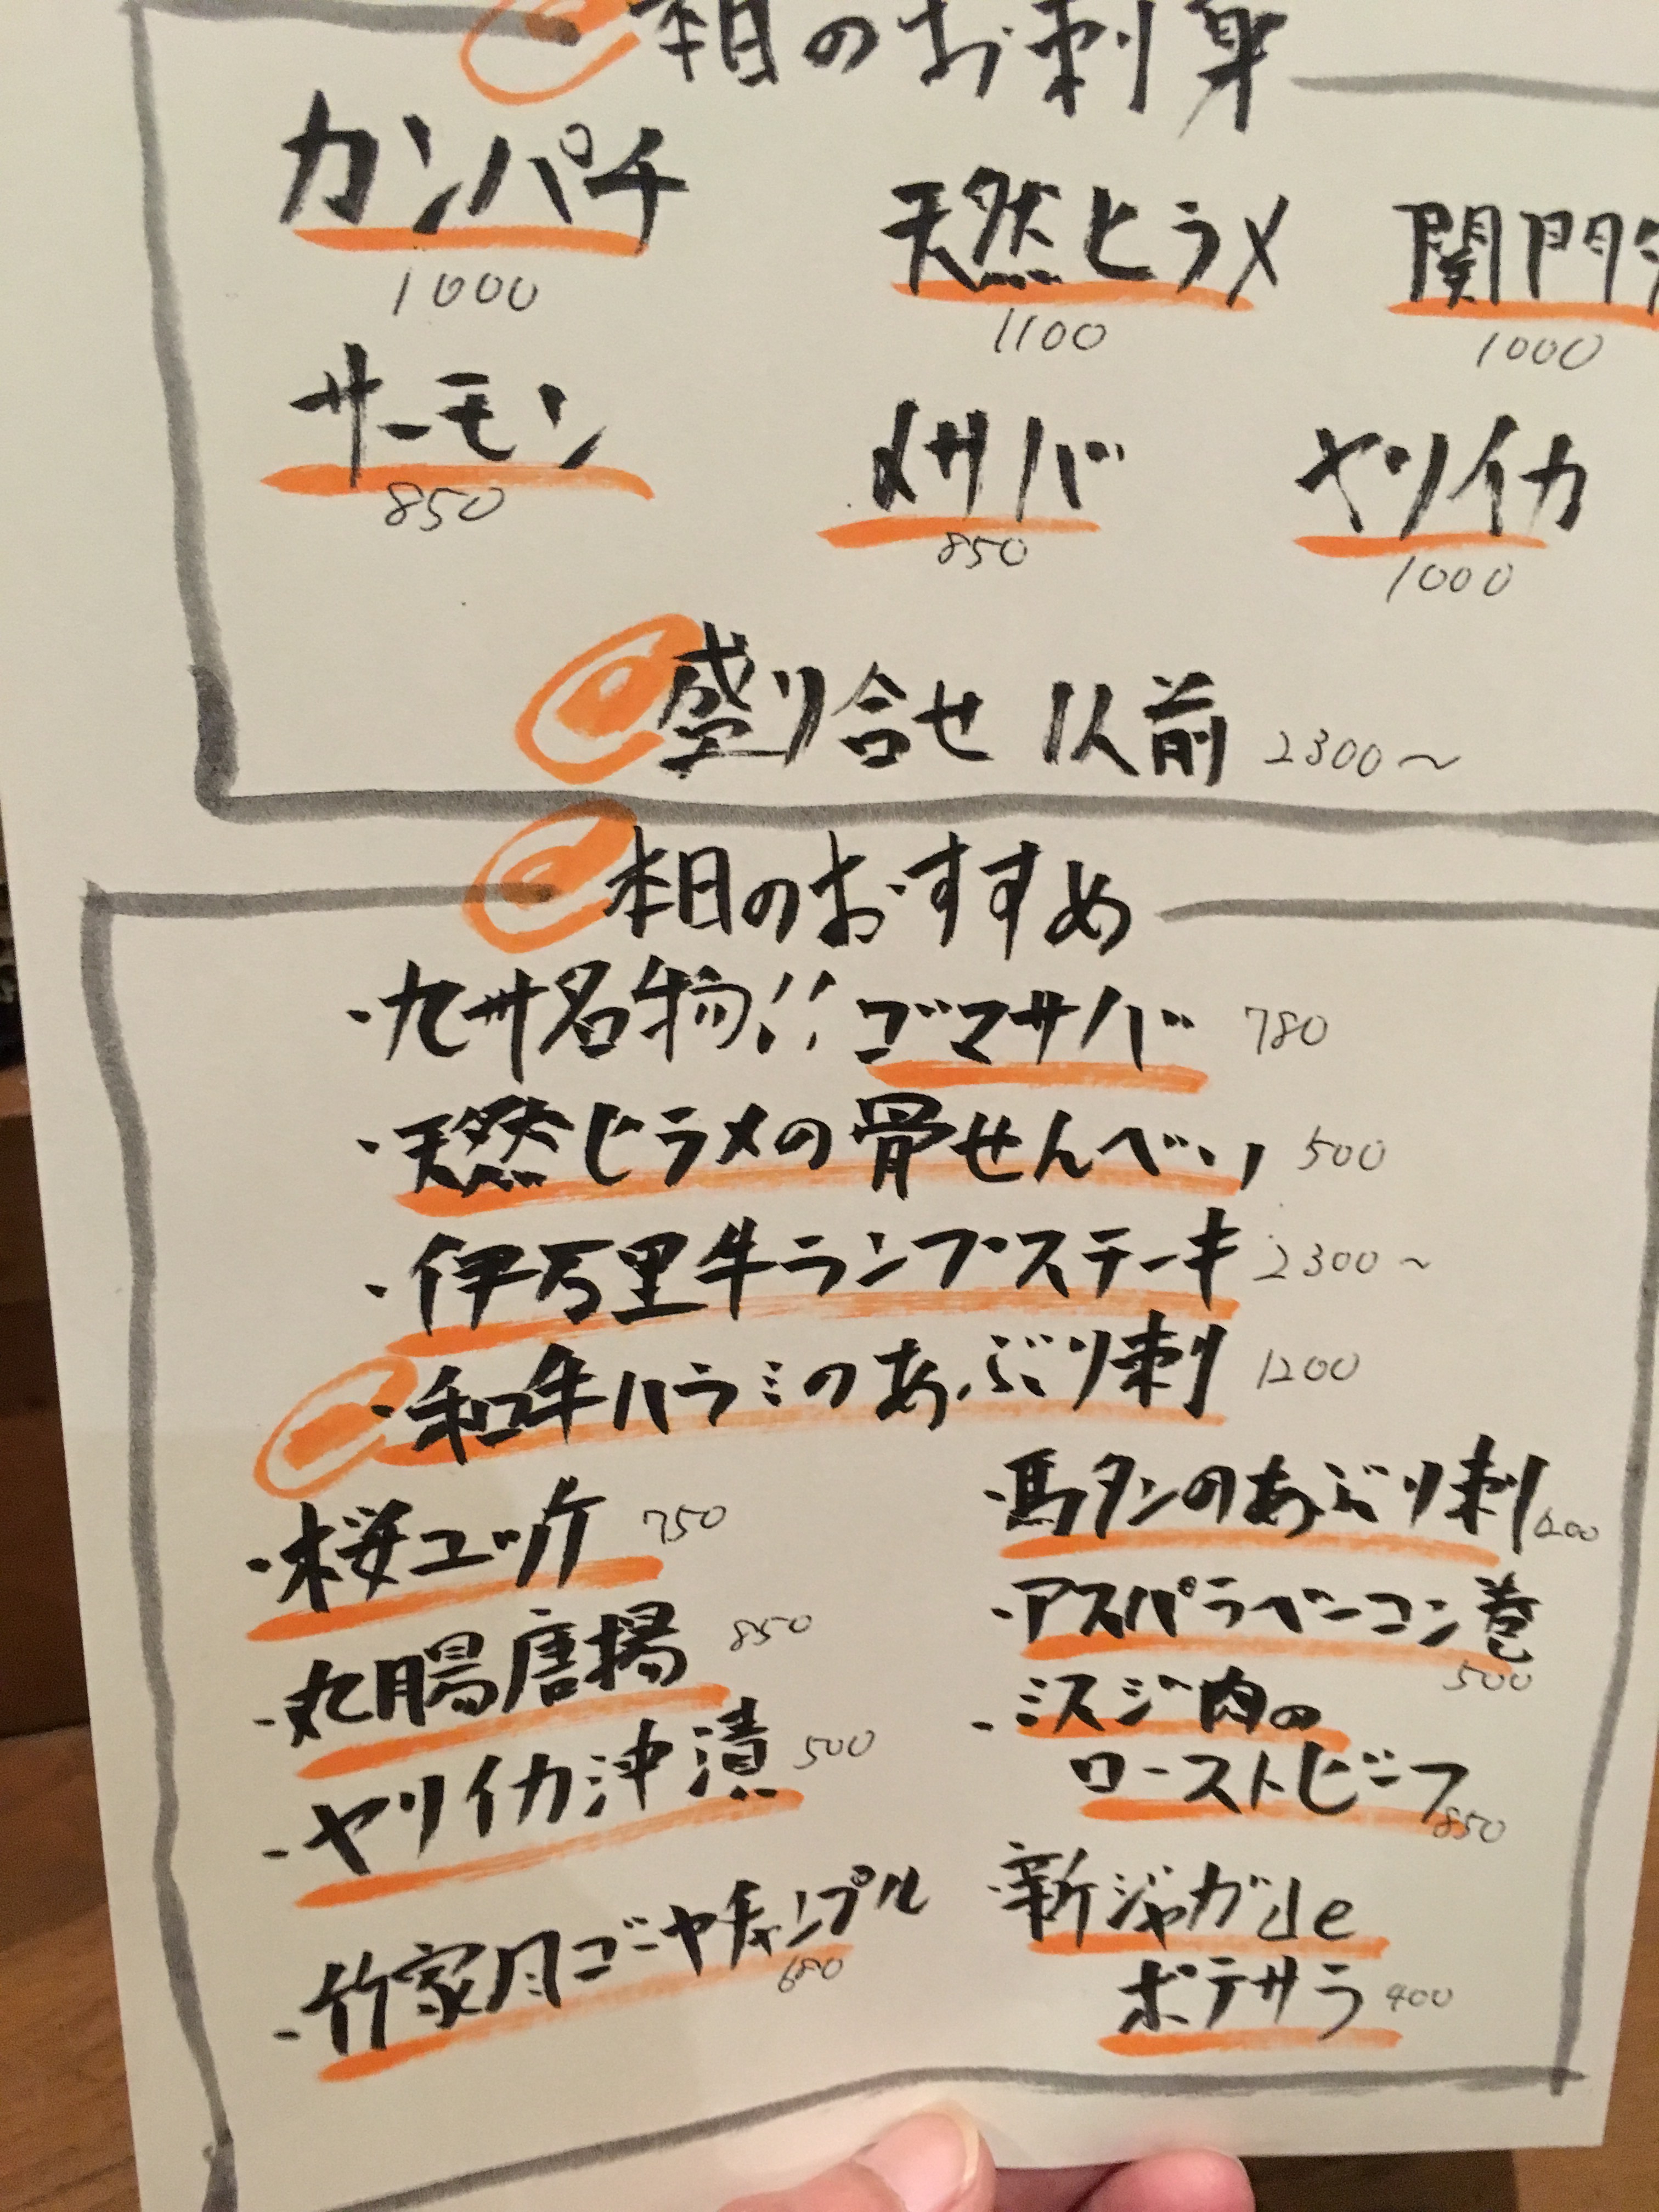 本日のお刺身
カンパチ 天然ヒラメ 関門
1000 1100 1000
サーモン 〆サバ ヤリイカ
850 850 1000
盛り合せ 1人前 2300〜
本日のおすすめ
・九州名物!!ゴマサバ 780
・天然ヒラメの骨せんべい 500
・伊万里牛ランプステーキ 2300〜
・和牛ハラミのあぶり刺 1200
・桜ユッケ 750
・丸腸唐揚 850
・ヤリイカ沖漬 500
・竹家風ゴーヤチャンプル
680
・馬タンのあぶり刺
・アスパラベーコン巻
500
・ミスジ肉の
ローストビーフ
850
・新ジャガde
ポテサラ 400